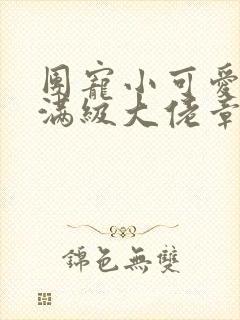 團寵小可愛
滿級大佬章
錦色無雙